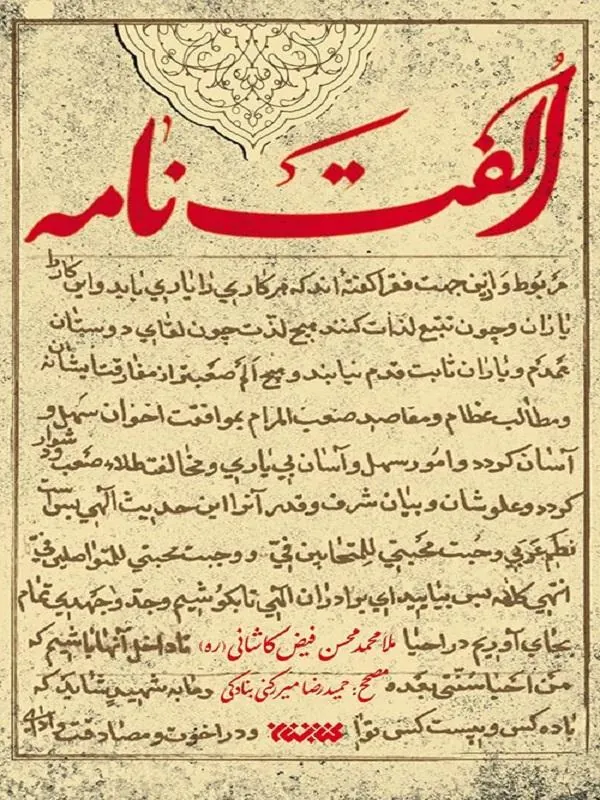 الفت نامه
مربوط و ازین جهت فقرا گفته‌اند که هر کاری را یاری باید و این کار را
یاران و چون تتبع لذات کنند هیچ لذت چون لقای دوستان
همدم و یاران ثابت قدم نیابند و هیچ الم صعبتر از مفارقت ایشان نه
و مطالب عظام و مقاصد صعب المرام بموافقت اخوان سهل و
آسان کردد و امور سهل و آسان بی یاری و مخالفت صعب و دشوار
کردد و علو شان و بیان شرف و قدر آنرا این حدیث الهی بس است
وجبت محبتی للمتحابین فی و وجبت محبتی للمتواصلین فی
انتهی کلامه پس بیایید ای برادران الهی تا بکوشیم و جد و جهدی تمام
بجای آوریم در احیا ملا محمد محسن فیض کاشانی (ره) تا داخل آنها باشیم که
من احیا سنتی بعد مصحح: حمیدرضا میررکنی بنادکی و مابه شهید شاید که
باده کس و بیست کس توا و در اخوت و مصادقت و